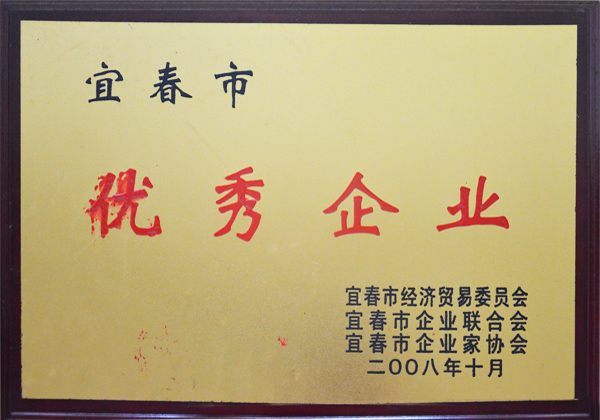 宜春市
优秀企业
宜春市经济贸易委员会
宜春市企业联合会
宜春市企业家协会
二〇〇八年十月